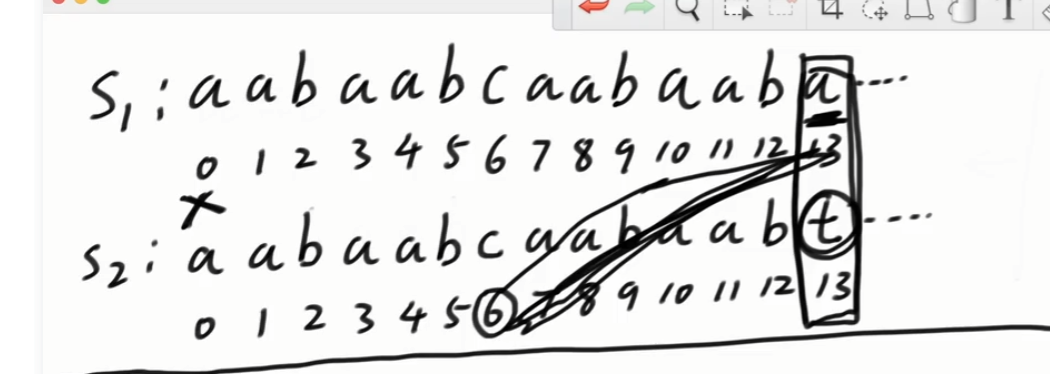 S₁: a a b a a b c a a b a a b a ----
0 1 2 3 4 5 6 7 8 9 10 11 12 13
X
S₂: a a b a a b c a a b a a b t ----
0 1 2 3 4 5 6 7 8 9 10 11 12 13